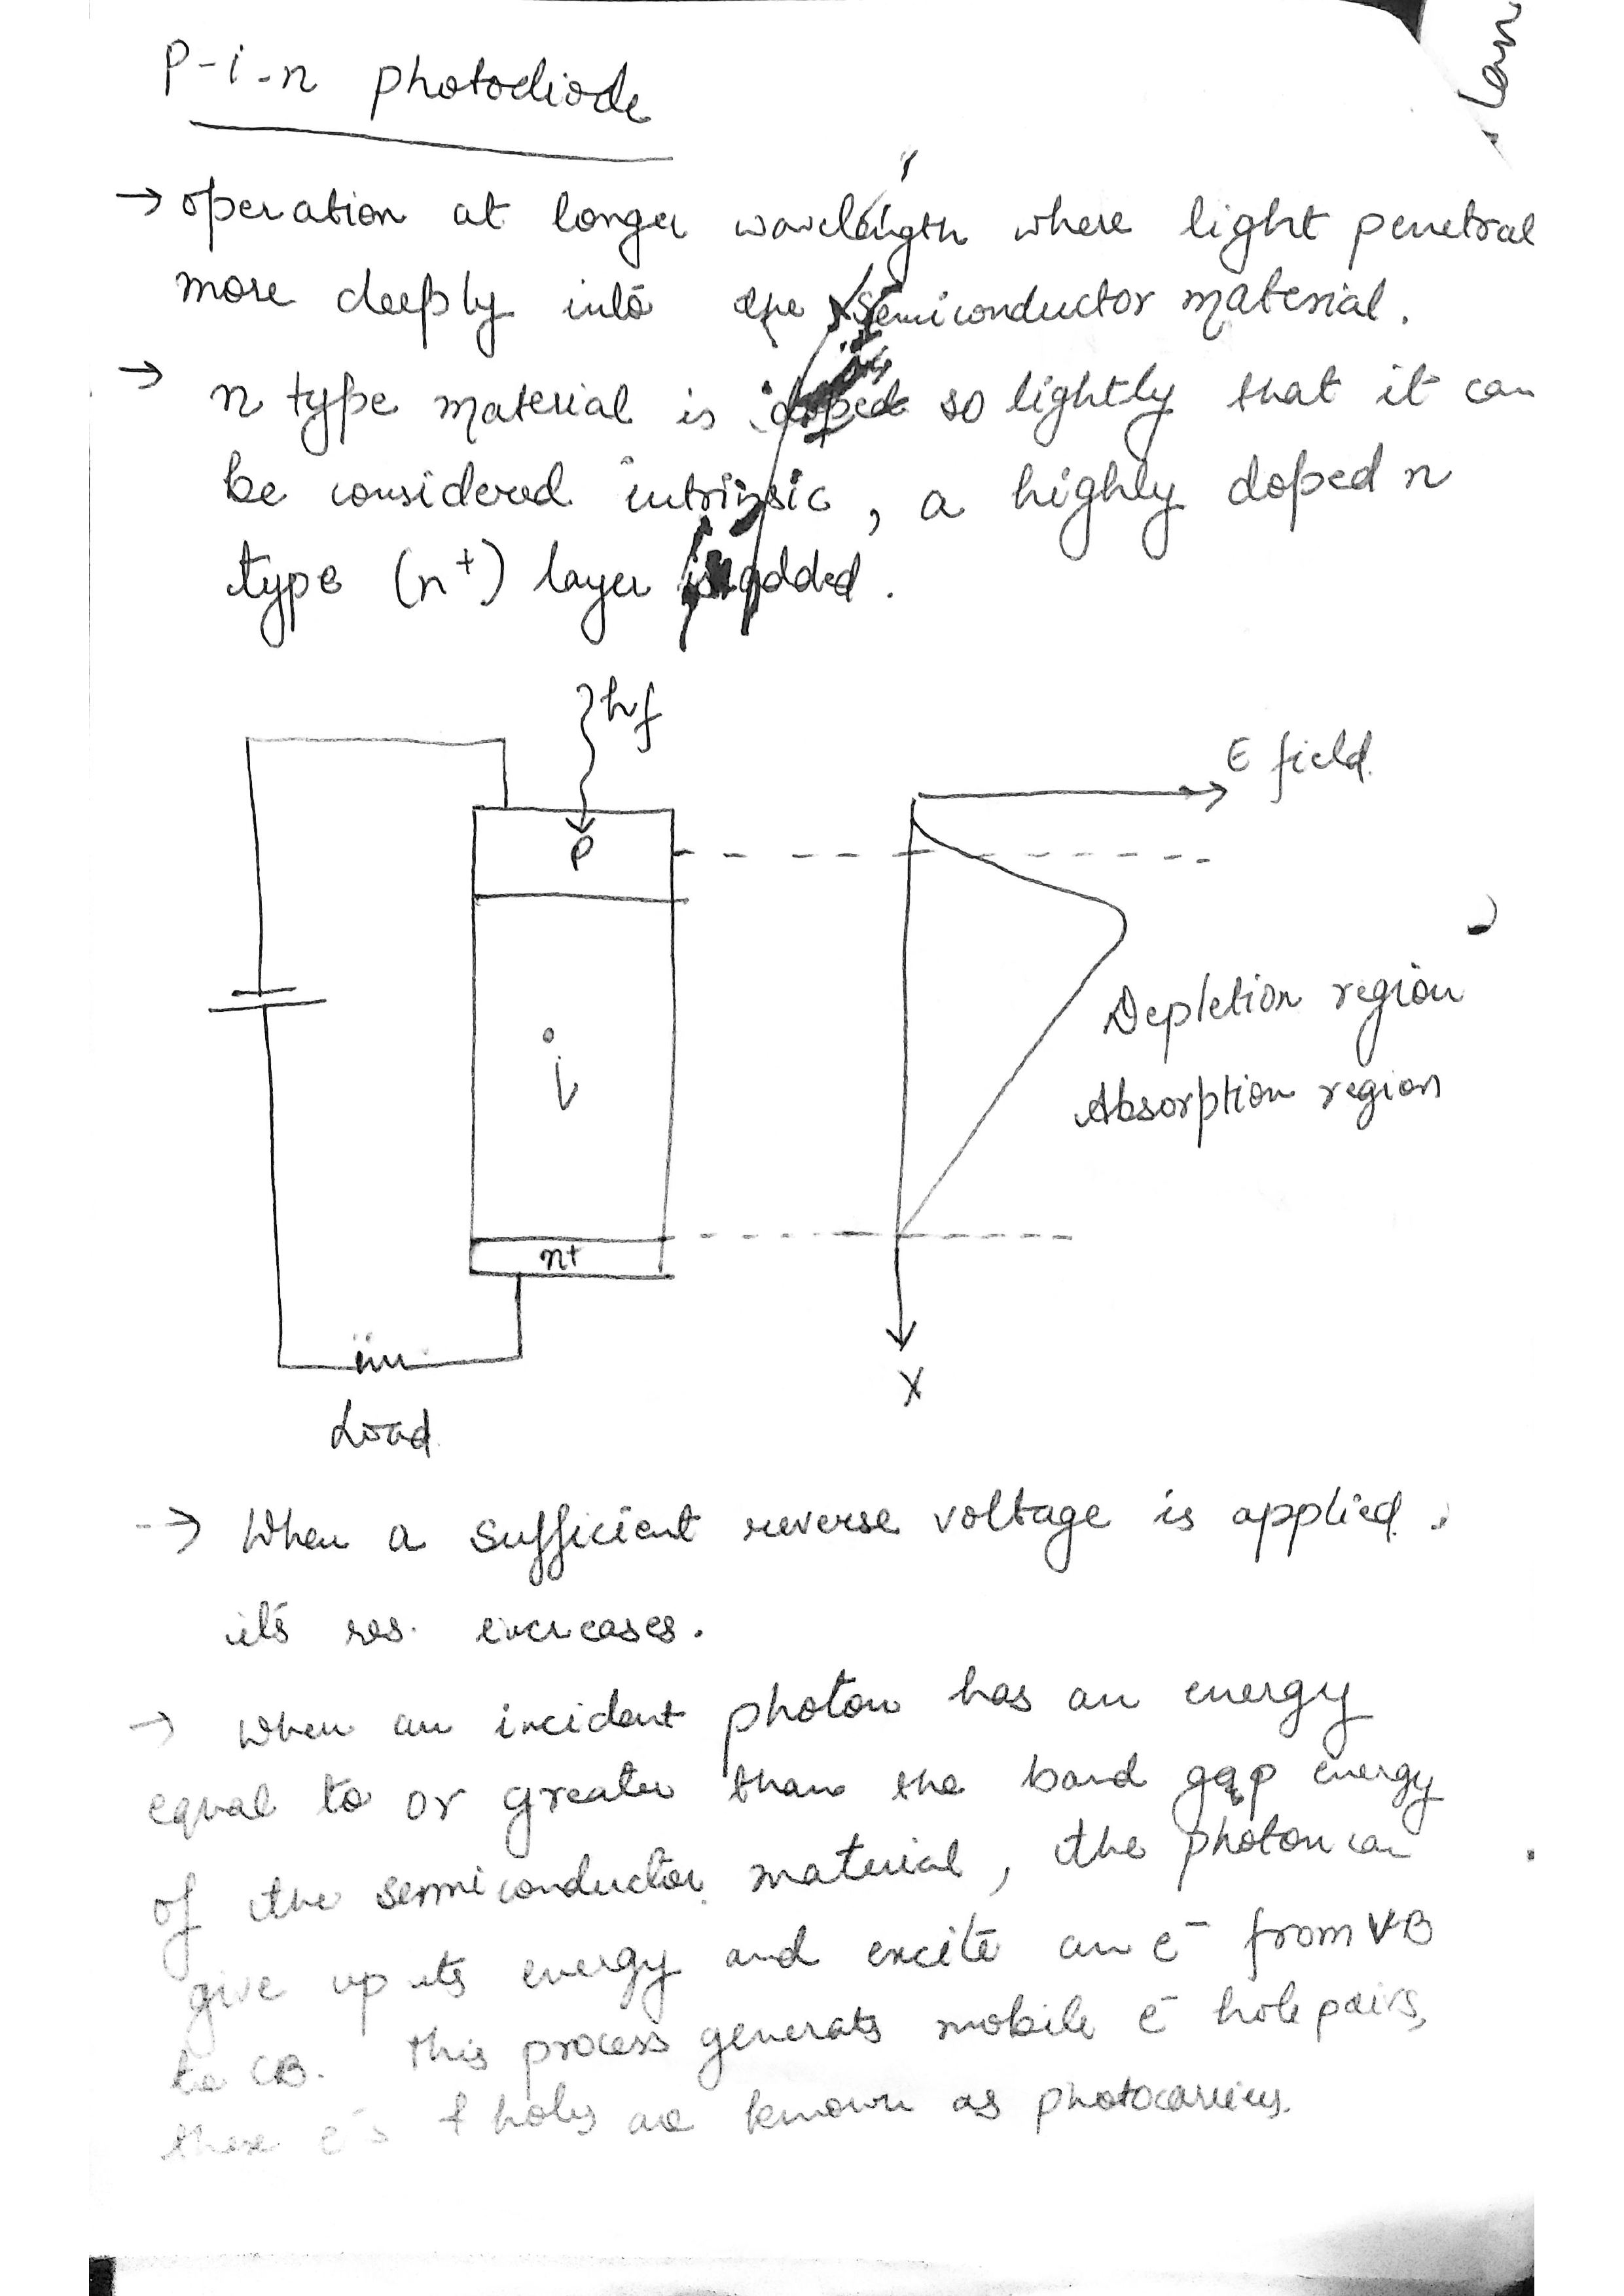 P-i-n photodiode
→ operation at longer wavelength where light penetrat
more deeply into the semiconductor material.
→ n type material is doped so lightly that it can
be considered intrinsic, a highly doped n
type (n+) layer is added.
hf
E field.
P
i
Depletion region
Absorption region
n+
X
Load
→ When a sufficient reverse voltage is applied.
it's res. increases.
→ When an incident photon has an energy
equal to or greater than the band gap energy
of the semiconductor material, the photon can
give up its energy and excite an e- from VB
to CB. This process generats mobile e- hole pairs,
these e-s & holes are known as photocarriers.